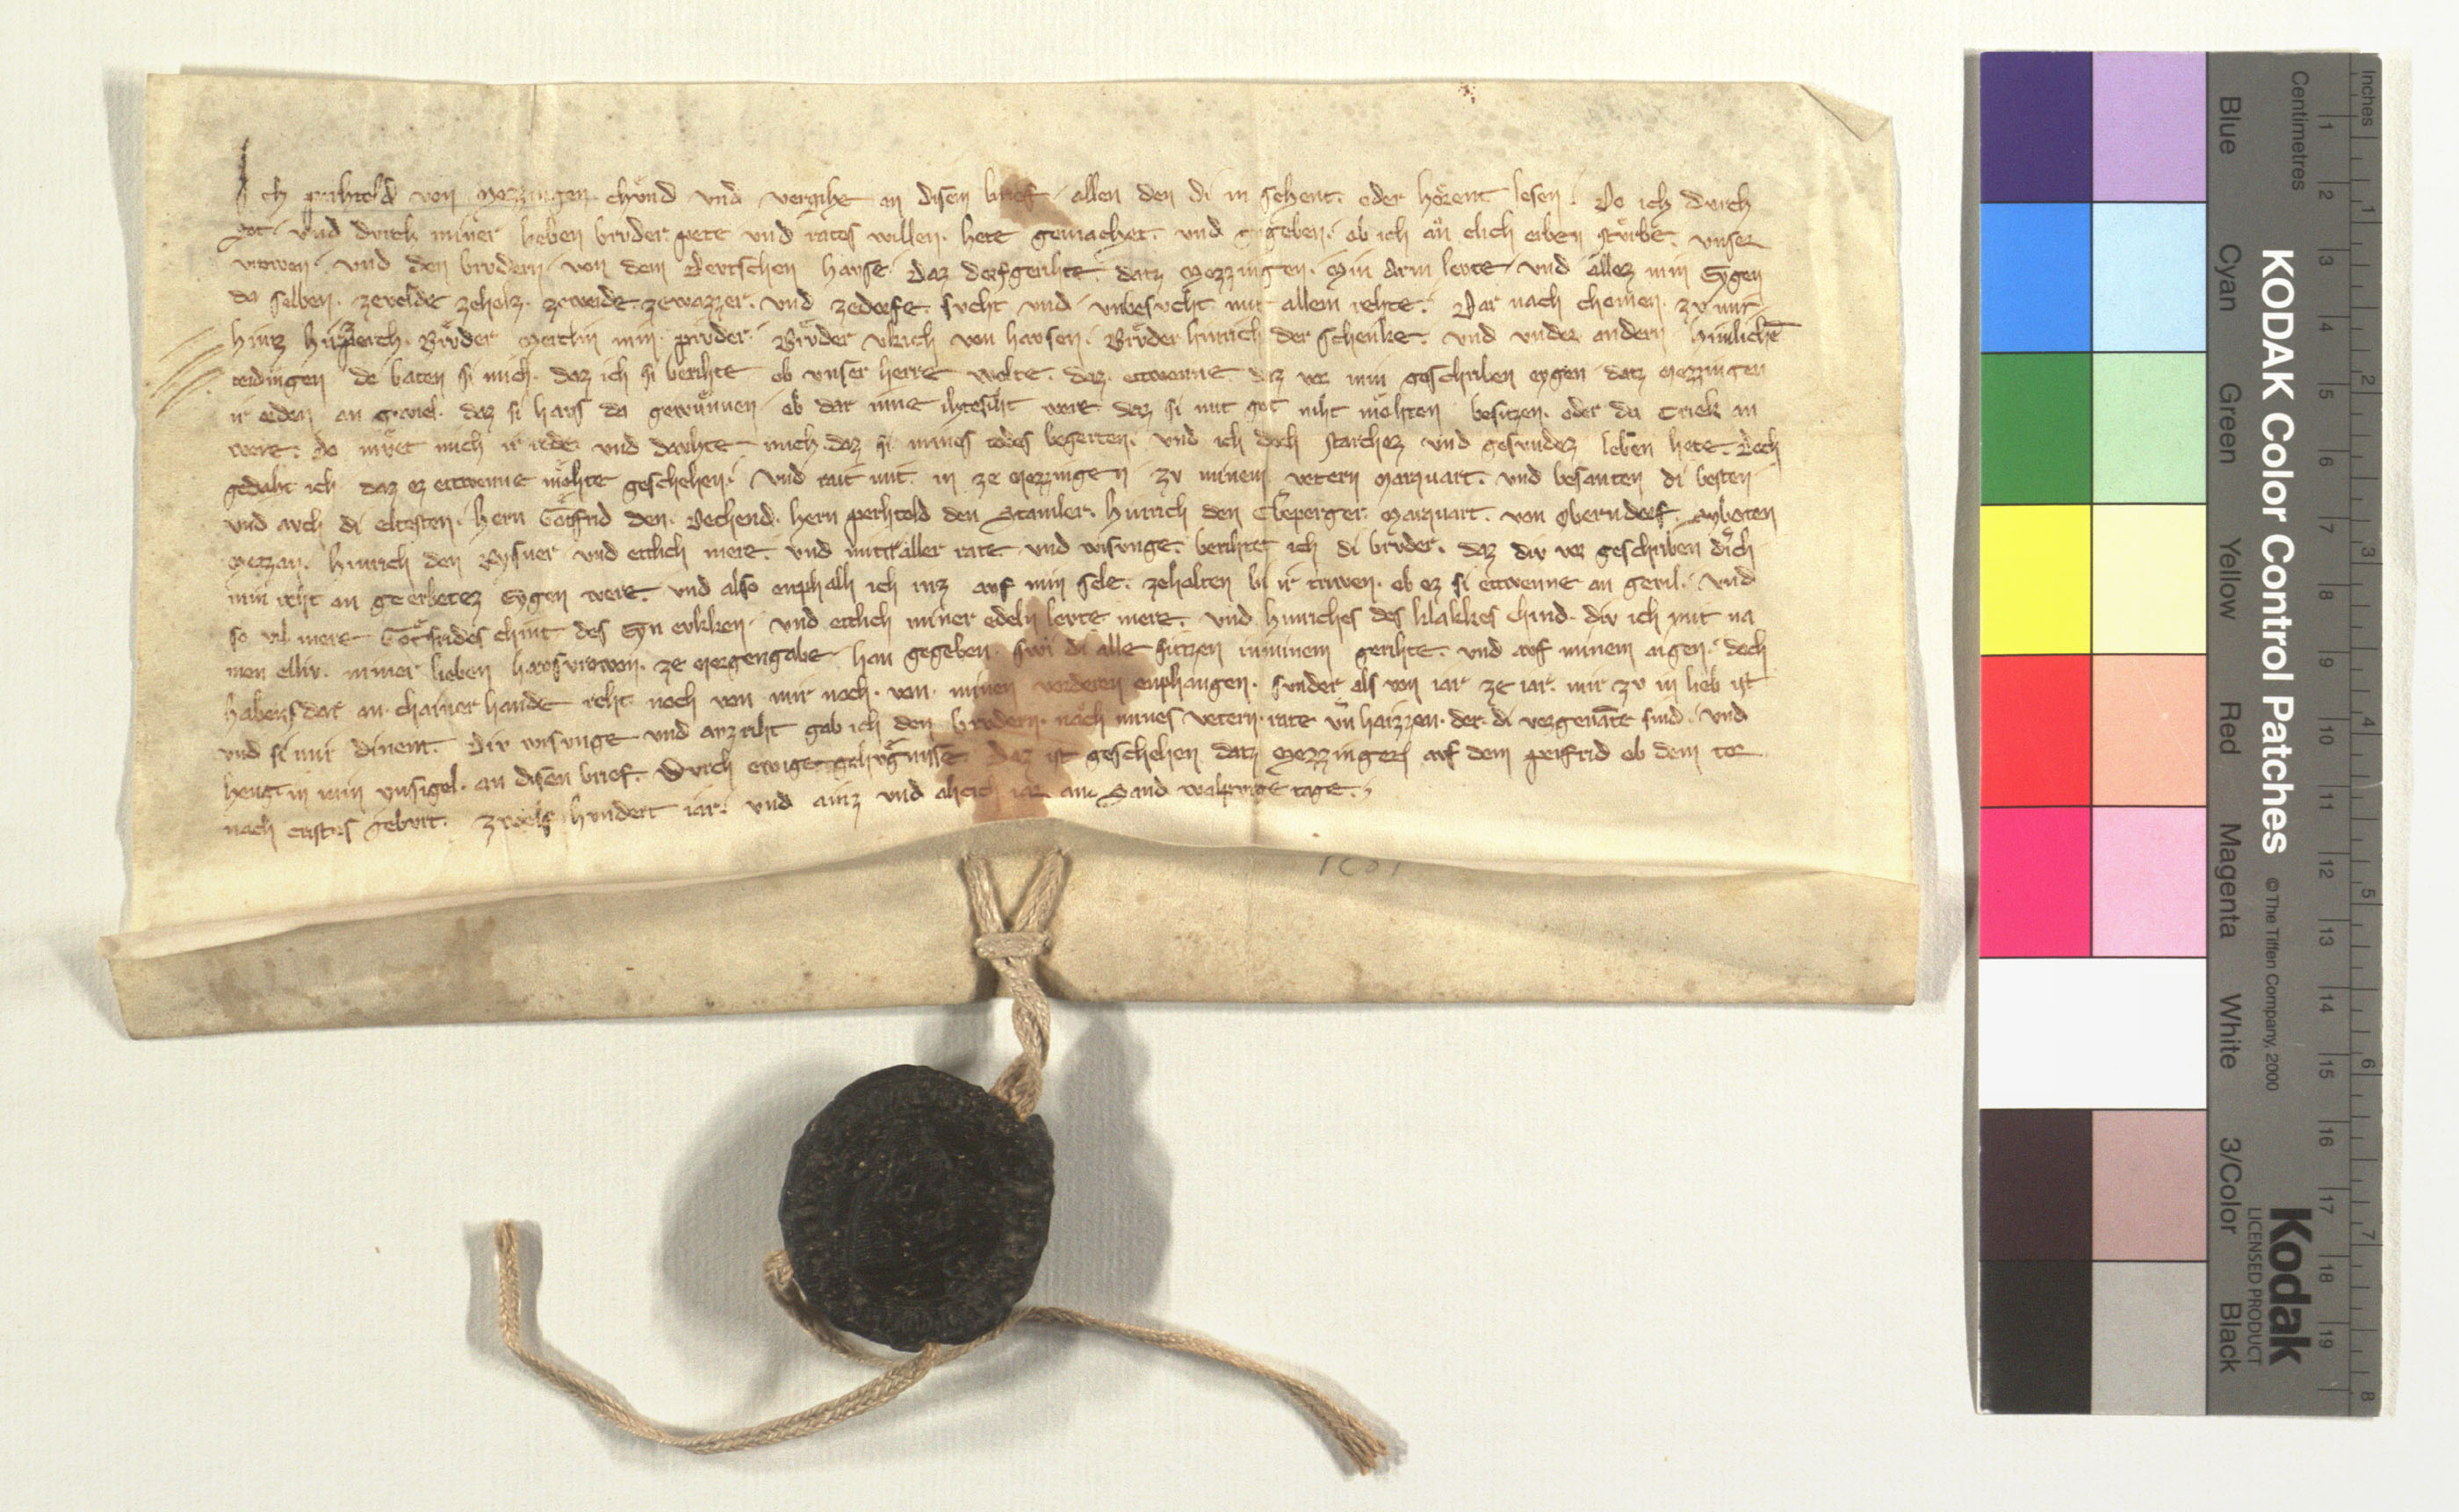 Ich perhtold von Mezzingen chůnd und vergihe an disen brief allen den di in sehent. oder hőrent lesen. Do ich durch
got. und durch miner lieben bruder pete und rates willen. hete gemachet. und gegeben. ob ich an elich erben sturbe. unser
vrowen. und den brudern von dem Devtschen havse. Daz dorfgerihte. datz Mezzingen. Min Arm levte und allez min Eygen
da selben. zevelde zeholz. zeweide. zewazzer. und zedorfe. sucht und unbesucht mit allem rehte. Dar nach chomen. zv mir
hintz Brůder Mertlin min pruder. Brůder vlrich von havsen. Brůder hinrich der schenke. und under andern himlichē
teidingen de baten si mich. daz ich si berihte ob unser herre wolte. daz. ettwenne daz vor min geschriben eygen datz Mezzingen
ir eden an geviel. daz si havs da gewůnnen ob dar inne iht were daz si mit got niht mőhten besitzen. oder da an
were. do můet mich ir rede und davhte mich daz si mines todes begerten. und ich doch starchez und gesundez leben hete. Doch
gedaht ich daz ez ettwenne mőhte geschehen. Und rait mit. in ze Mezzingen zv minem vetern Marquart. und besanten di besten
und avch di eltesten. hern Gőtfrid den. Techend. hern perhtold den Stamler. hinrich den Eberperger. Marquart. von Oberndorf.
Metzan. hinrich den Rysner und ettlich mere. und mit aller rate und wisunge. berihtet ich di brůder. daz div vor geschriben dich
min reht an geerbetez Eygen were. und also enphalh ich inz avf min sele. zehalten bi ir triwen. ob ez si ettwenne an gevil. und
so vil mere Gőtfrides chint des und ettlich miner edeln levte mere. und hinriches des klakkes chind. div ich mit na
men elliv. miner lieben havsvrowen. ze Morgengabe han gegeben. swi di alle sitzen in minem gerihte. und avf minem aigen. doch
habens dar an. chainer hande reht noch von mir noch. von. minen vorderen enphangen. sunder als von iar ze iar. mir zv in lieb ist
und si mir dinent. Div wisunge und avzriht gab ich den brudern. nach mines vetern. rate vn̄ haizzen. der. di vorgenāte sind. und
hengt in min ynsigel. an disen brief. Durch ewige gehůgnisse Daz ist geschehen datz Mezzingen avf dem perfrid ob dem tor
nach cristes geburt. zwelf hundert iar. und ainz und ahcich iar an Sand walpurge tage.
1281
KODAK Color Control Patches
© The Tiffen Company, 2000
Kodak
LICENSED PRODUCT
Blue Cyan Green Yellow Red Magenta White 3/Color Black
Centimetres
1 2 3 4 5 6 7 8 9 10 11 12 13 14 15 16 17 18 19
Inches
1 2 3 4 5 6 7 8